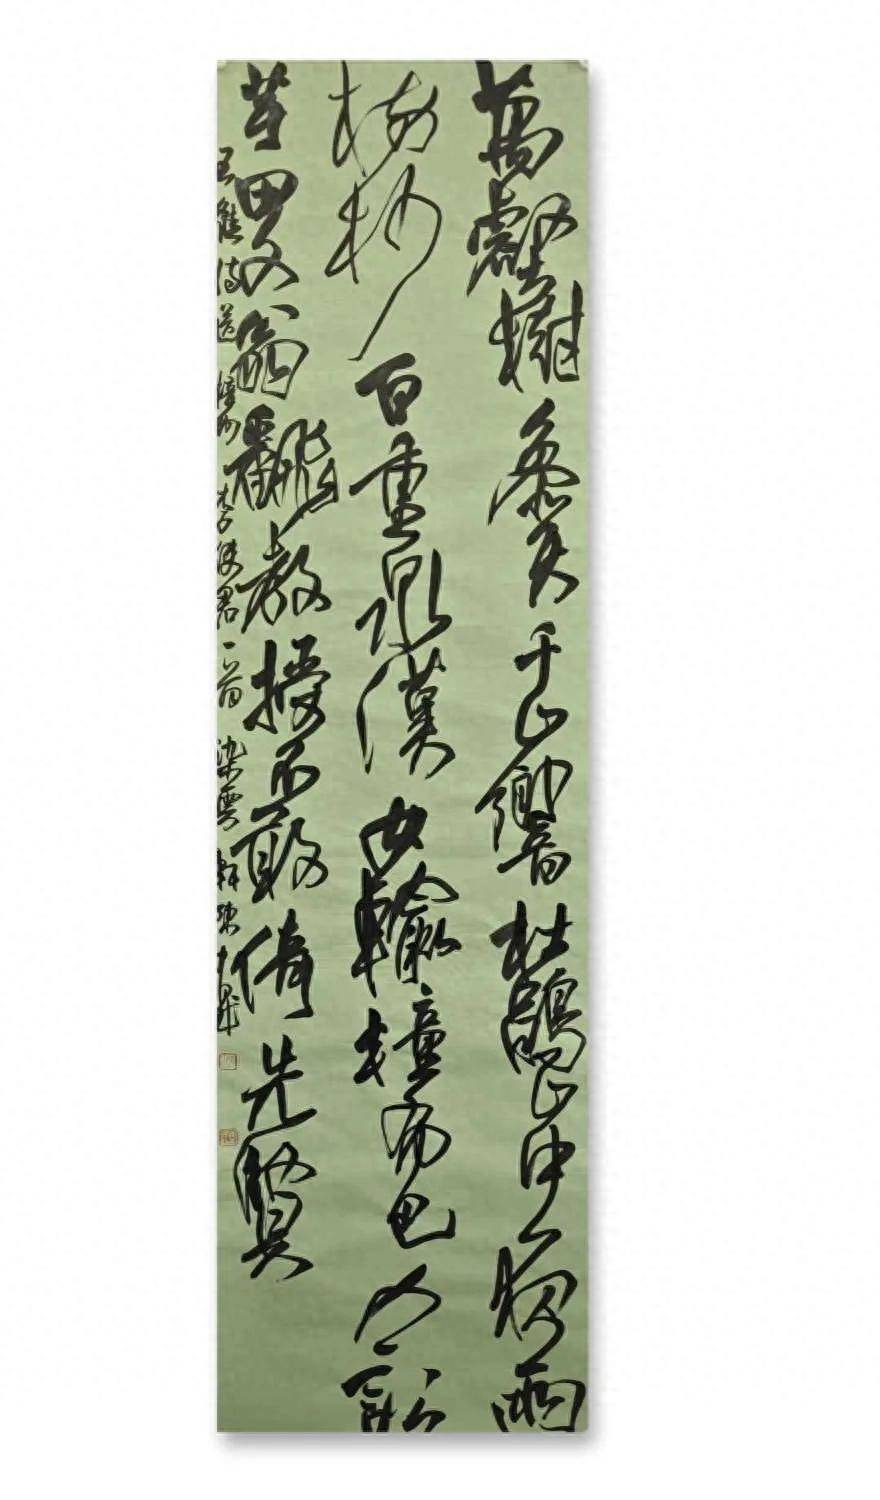 萬壑樹參天千山響杜鵑山中一夜雨
樹杪百重泉漢女輸橦布巴人訟
芋田文翁飜教授不敢倚先賢
王維詩送梓州李使君一首染雲軒陳